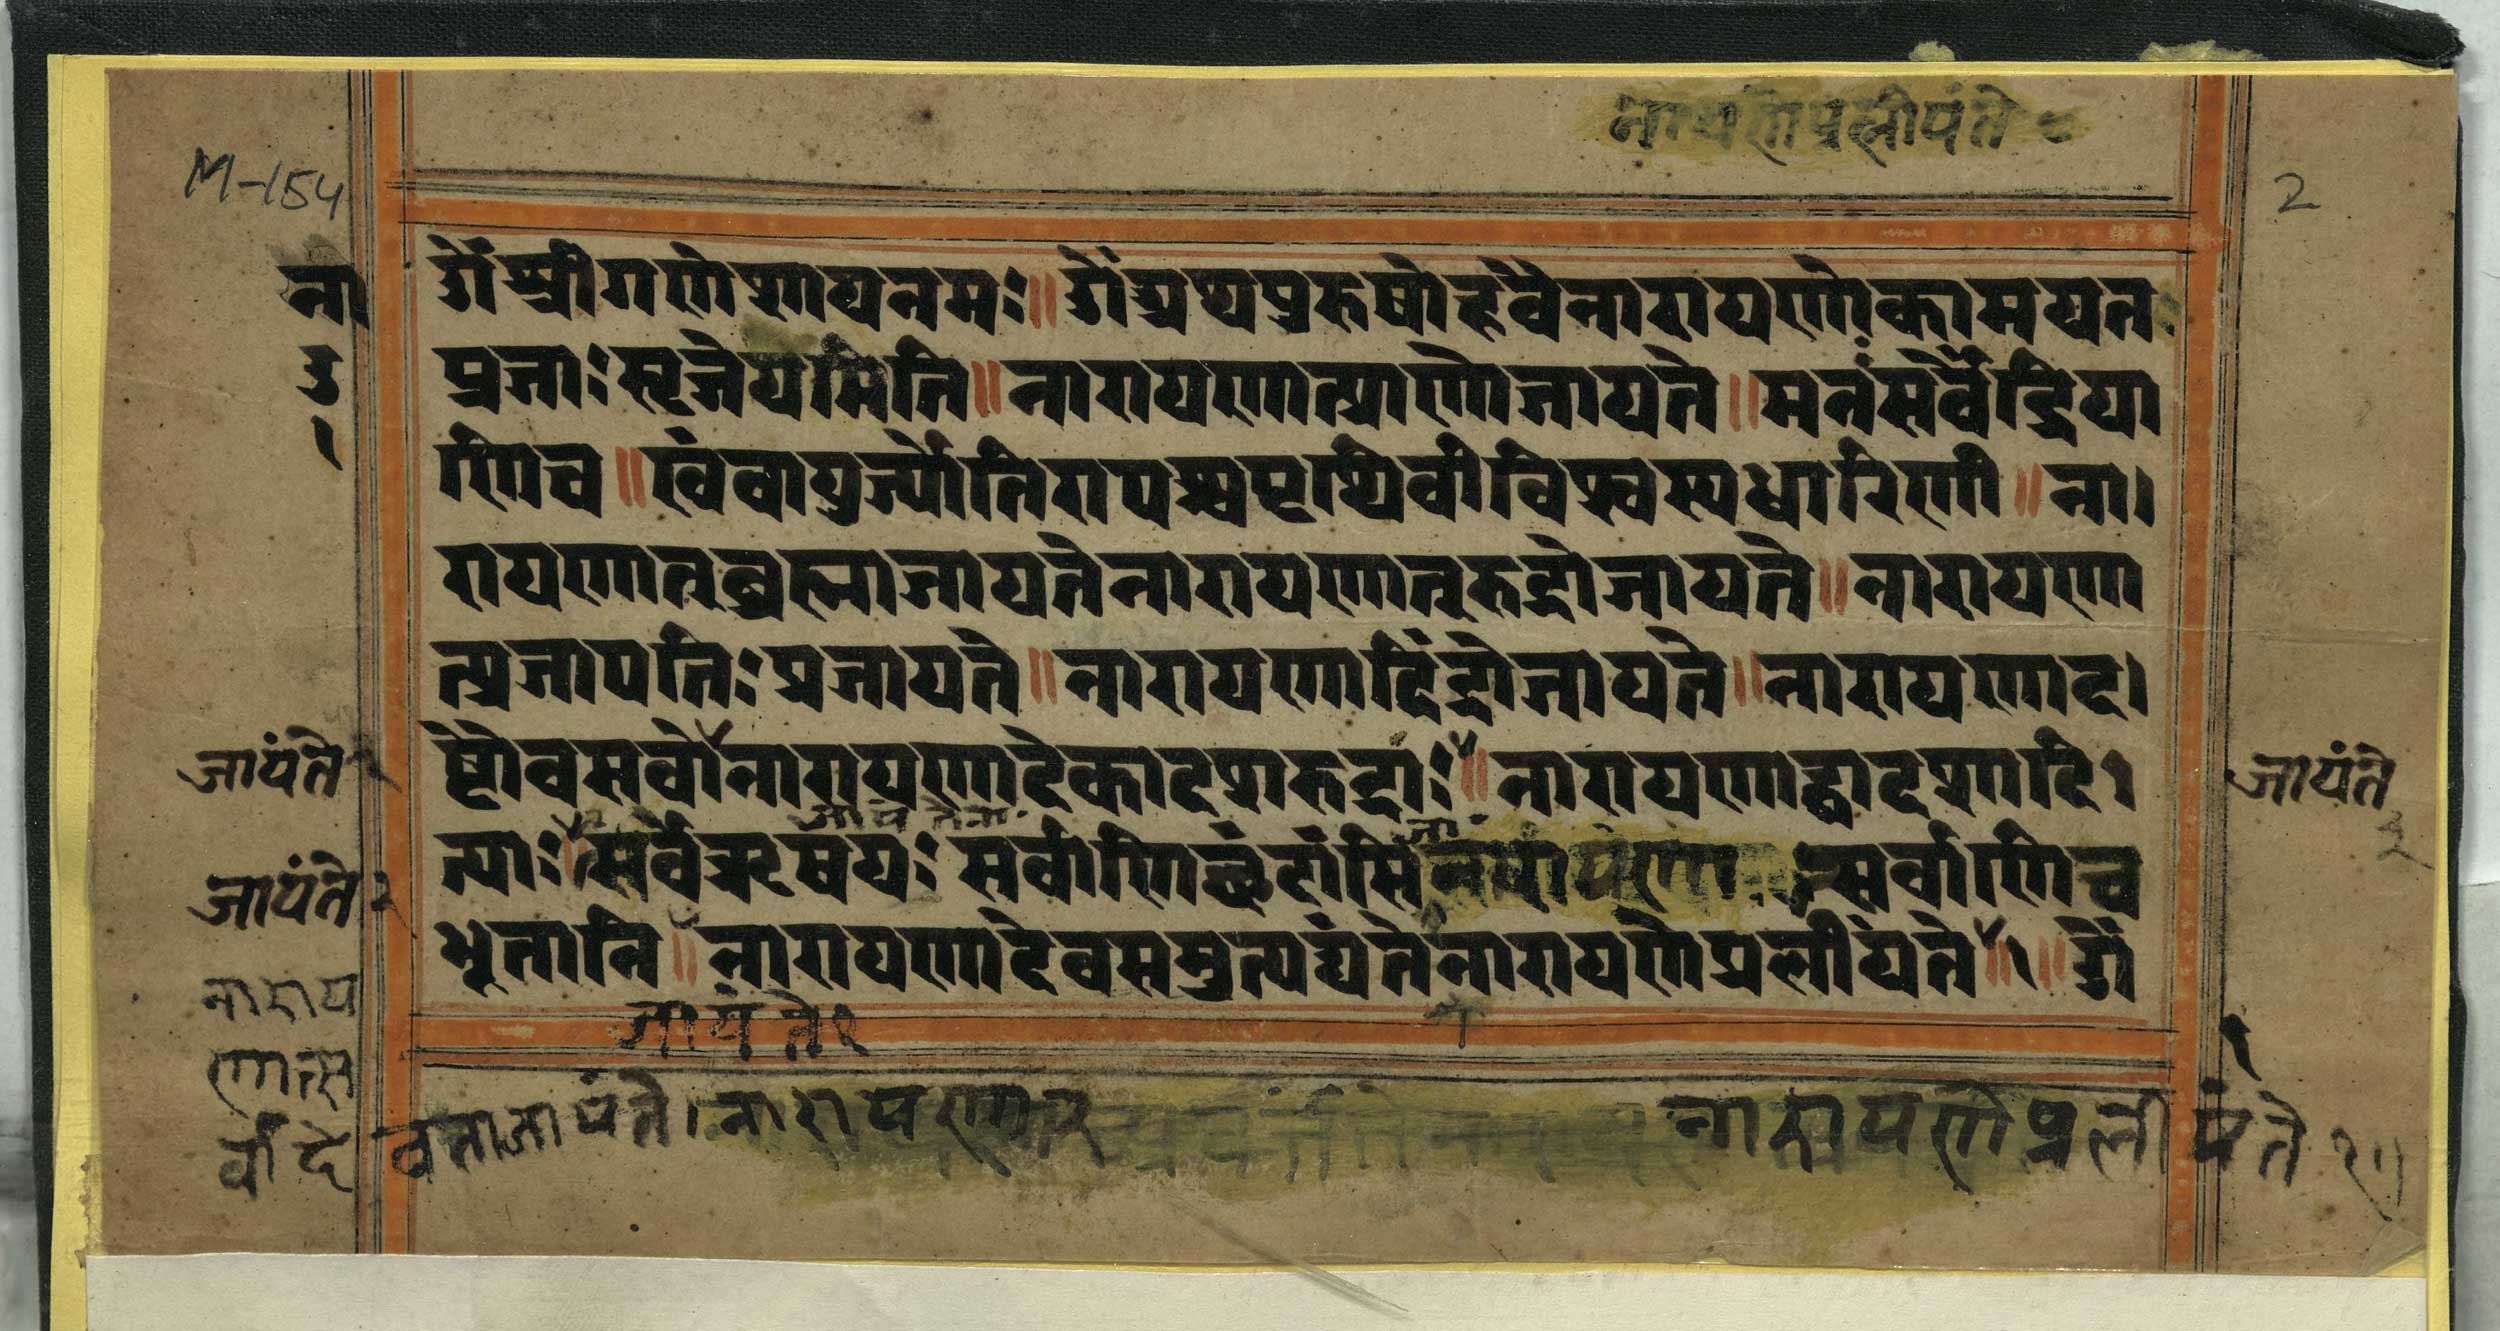 नायणेप्रलीयंते
M-154
2
ना
उ
१
ॐ श्रीगणेशायनमः॥ ॐ अथपुरुषोहवैनारायणोकामयत
प्रजाः सृजेयमिति॥ नारायणात्प्राणोजायते॥ मनंसर्वेंद्रिया
णिच॥ खंवायुर्ज्योतिरापश्चपृथिवीविश्वस्यधारिणी॥ ना।
रायणात्ब्रह्माजायतेनारायणात्रुद्रोजायते॥ नारायणा
त्प्रजापतिः प्रजायते॥ नारायणादिंद्रोजायते॥ नारायणाद।
ष्टौवसवोनारायणादेकादशरुद्राः॥ नारायणाद्द्वादशादि।
जायंते २
जायंते
२
त्याः॥ सर्वेऋषयः सर्वाणिछंदांसि नारायणा सर्वाणिच
जायंते २
भूतानि॥ नारायणादेवसमुत्पद्यंतेनारायणेप्रलीयंते॥१॥ ॐ
नाराय
णात्स
र्वादे वताजायंते। नारायणाद
जायंते १
१
नारायणेप्रलीयंते १॥